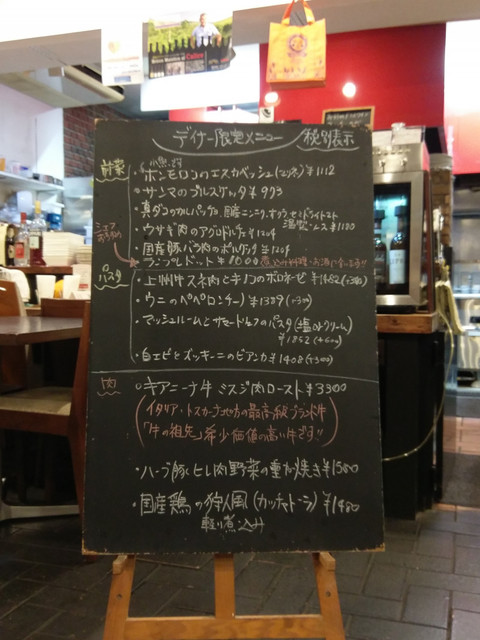 ディナー限定メニュー 税別表示
前菜
小魚です
・ホンモロコのエスカベッシュ(マリネ)¥1112
・サンマのブルスケッタ¥973
・真ダコのカルパッチョ 国産ニンニク、オリーブ、セミドライトマト
温製ソース ¥1180
・ウサギ肉のアグロドルチェ ¥1204
・国産豚バラ肉のボルケッタ ¥1204
・ランプレドット ¥800
パスタ
・上州牛スネ肉とキノコのボロネーゼ ¥1482(+300)
・ウニのペペロンチーノ ¥1389(+300)
・マッシュルームとサマートリュフのパスタ(塩orクリーム)
¥1852(+600)
・白エビとズッキーニのビアンカ ¥1408(+300)
肉
・キアニーナ牛 ミスジ肉ロースト ¥3300
(イタリア・トスカーナ地方の最高級ブランド牛
「牛の祖先」希少価値の高い牛です!!)
・ハーブ豚ヒレ肉野菜の重ね焼き ¥1580
・国産鶏の狩人風(カッチャトーラ)¥1480
軽い煮込み